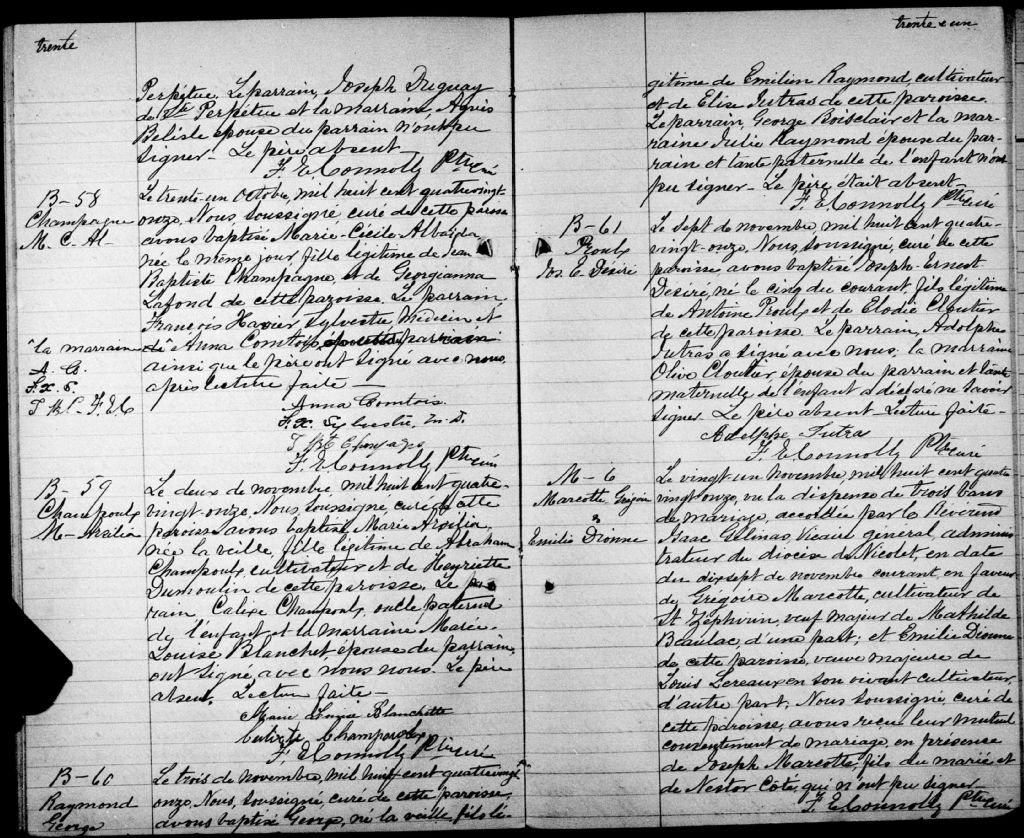 trente
Perpétue. Le parrain, Joseph Duguay
de Ste Perpétue et la marraine, Agnès
Belisle épouse du parrain n'ont pu
signer - Le père absent -
F. E. Connolly Ptre curé
B - 58
Champagne
M. C. Al-
Le trente-un Octobre, mil huit cent quatrevingt-
onze, Nous soussigné curé de cette paroisse
avons baptisé Marie-Cécile Albaïda,
née le même jour, fille légitime de Jean
Baptiste Champagne et de Georgianna
Lafond de cette paroisse. Le parrain,
François Xavier Sylvestre, Médecin et
"la marraine
Anna Comtois épouse du parrain
A. C.
ainsi que le père ont signé avec nous
F. X. S.
après lecture faite —
J B C - F. E C
Anna Comtois
F. X. Sylvestre M. D.
J Bte Champagne
F. E Connolly Ptre curé
B - 59
Champoulx
M - Arsilia
Le deux de novembre, mil huit cent quatre-
vingt-onze, Nous, soussigné, curé de cette
paroisse avons baptisé Marie Arsilia,
née la veille, fille légitime de Abraham
Champoulx, cultivateur et de Henriette
Dumoulin de cette paroisse. Le par
rain Calixe Champoulx, oncle paternel
de l'enfant et la marraine Marie-
Louise Blanchet épouse du parrain,
ont signé avec nous nous. Le père
absent. Lecture faite -
Marie Louise Blanchette
Calixte Champoux
F. E Connolly Ptre curé
B - 60
Raymond
George
Le trois de novembre, mil huit cent quatrevingt
onze, Nous, soussigné, curé de cette paroisse,
avons baptisé George, né la veille, fils lé-
trente & un
gitime de Emilien Raymond cultivateur
et de Elise Jutras de cette paroisse.
Le parrain, George Boisclair et la mar-
raine Julie Raymond épouse du par-
rain et tante paternelle de l'enfant n'ont
pu signer - Le père était absent -
F. E Connolly Ptre curé
B - 61
Proulx
Jos. E. Désiré
Le sept de novembre, mil huit cent quatre-
vingt-onze, Nous, soussigné, curé de cette
paroisse, avons baptisé Joseph-Ernest
Désiré, né le cinq du courant, fils légitime
de Antoine Proulx et de Elodie Cloutier
de cette paroisse. Le parrain, Adolphe
Jutras a signé avec nous; la marraine
Olive Cloutier, épouse du parrain et tante
maternelle de l'enfant a déclaré ne savoir
signer. Le père absent - Lecture faite -
Adolphe Jutra
F. E Connolly Ptre curé
M - 6
Marcotte Grégoire
&
Emilie Dionne
Le vingt-un novembre, mil huit cent quatre
vingt-onze, vu la dispense de trois bans
de mariage, accordée par le Révérend
Isaac Gélinas, Vicaire général, adminis
trateur du diocèse de Nicolet, en date
du dixsept de novembre courant, en faveur
de Grégoire Marcotte, cultivateur de
St Zéphirin, veuf majeur de Mathilde
Baulac, d'une part; et Emilie Dionne
de cette paroisse, veuve majeure de
Louis Lereaux en son vivant cultivateur,
d'autre part; Nous soussigné, curé de
cette paroisse, avons reçu leur mutuel
consentement de mariage, en présence
de Joseph Marcotte, fils du marié et
de Nestor Côté, qui n'ont pu signer -
F. E Connolly Ptre curé